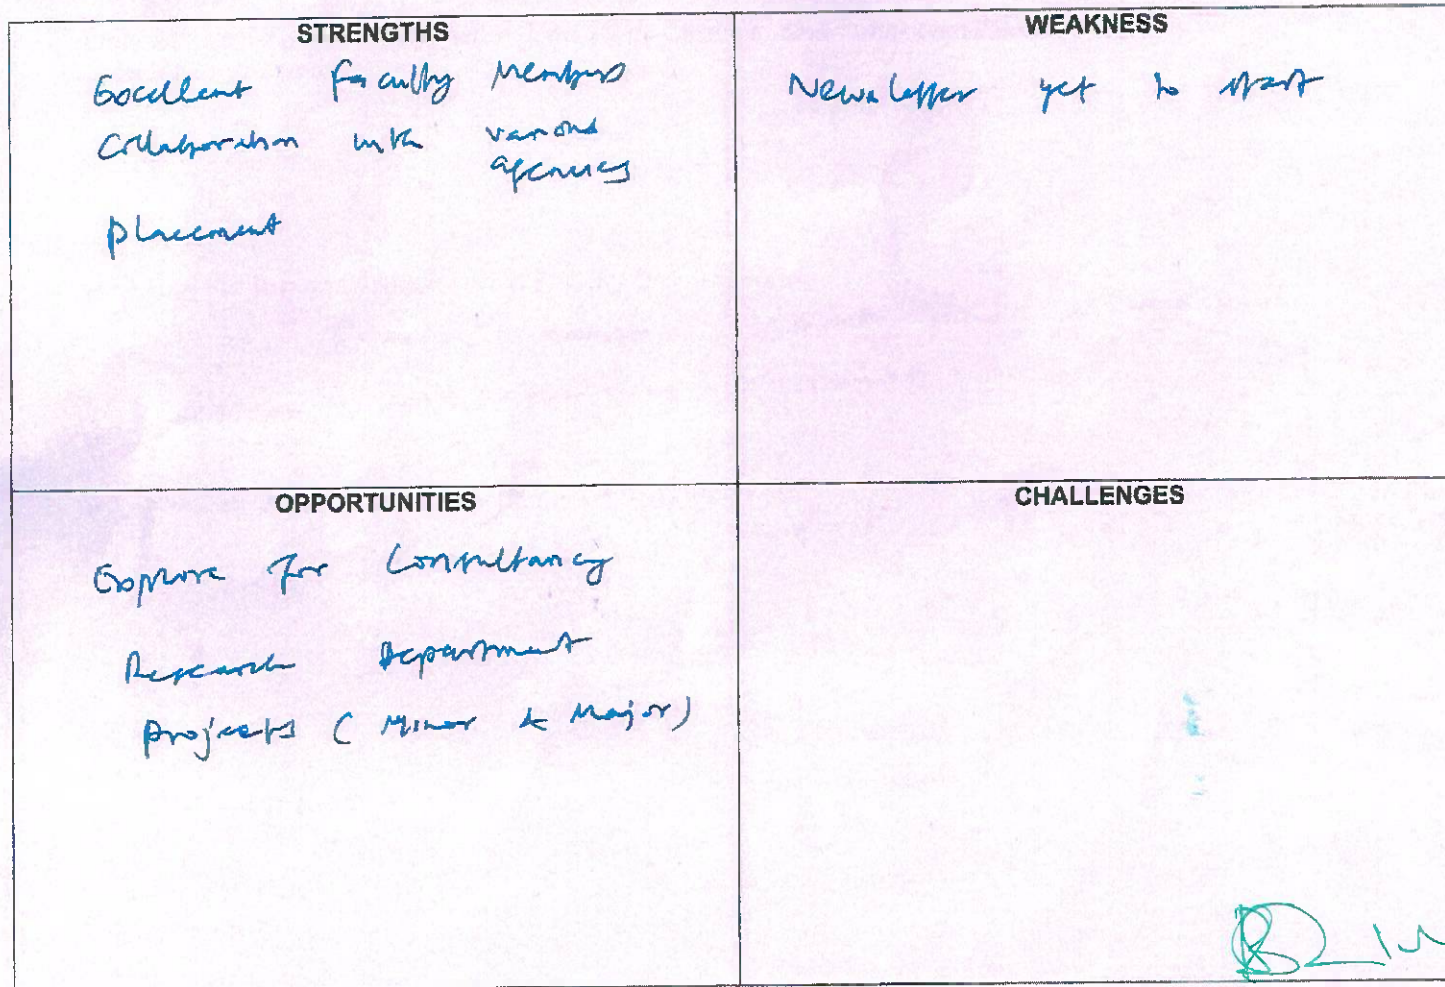 STRENGTHS
Excellent Faculty Members
Collaboration with various
agencies
Placement
WEAKNESS
Newsletter yet to start
OPPORTUNITIES
Explore for Consultancy
Research Department
Projects ( Minor & Major)
CHALLENGES